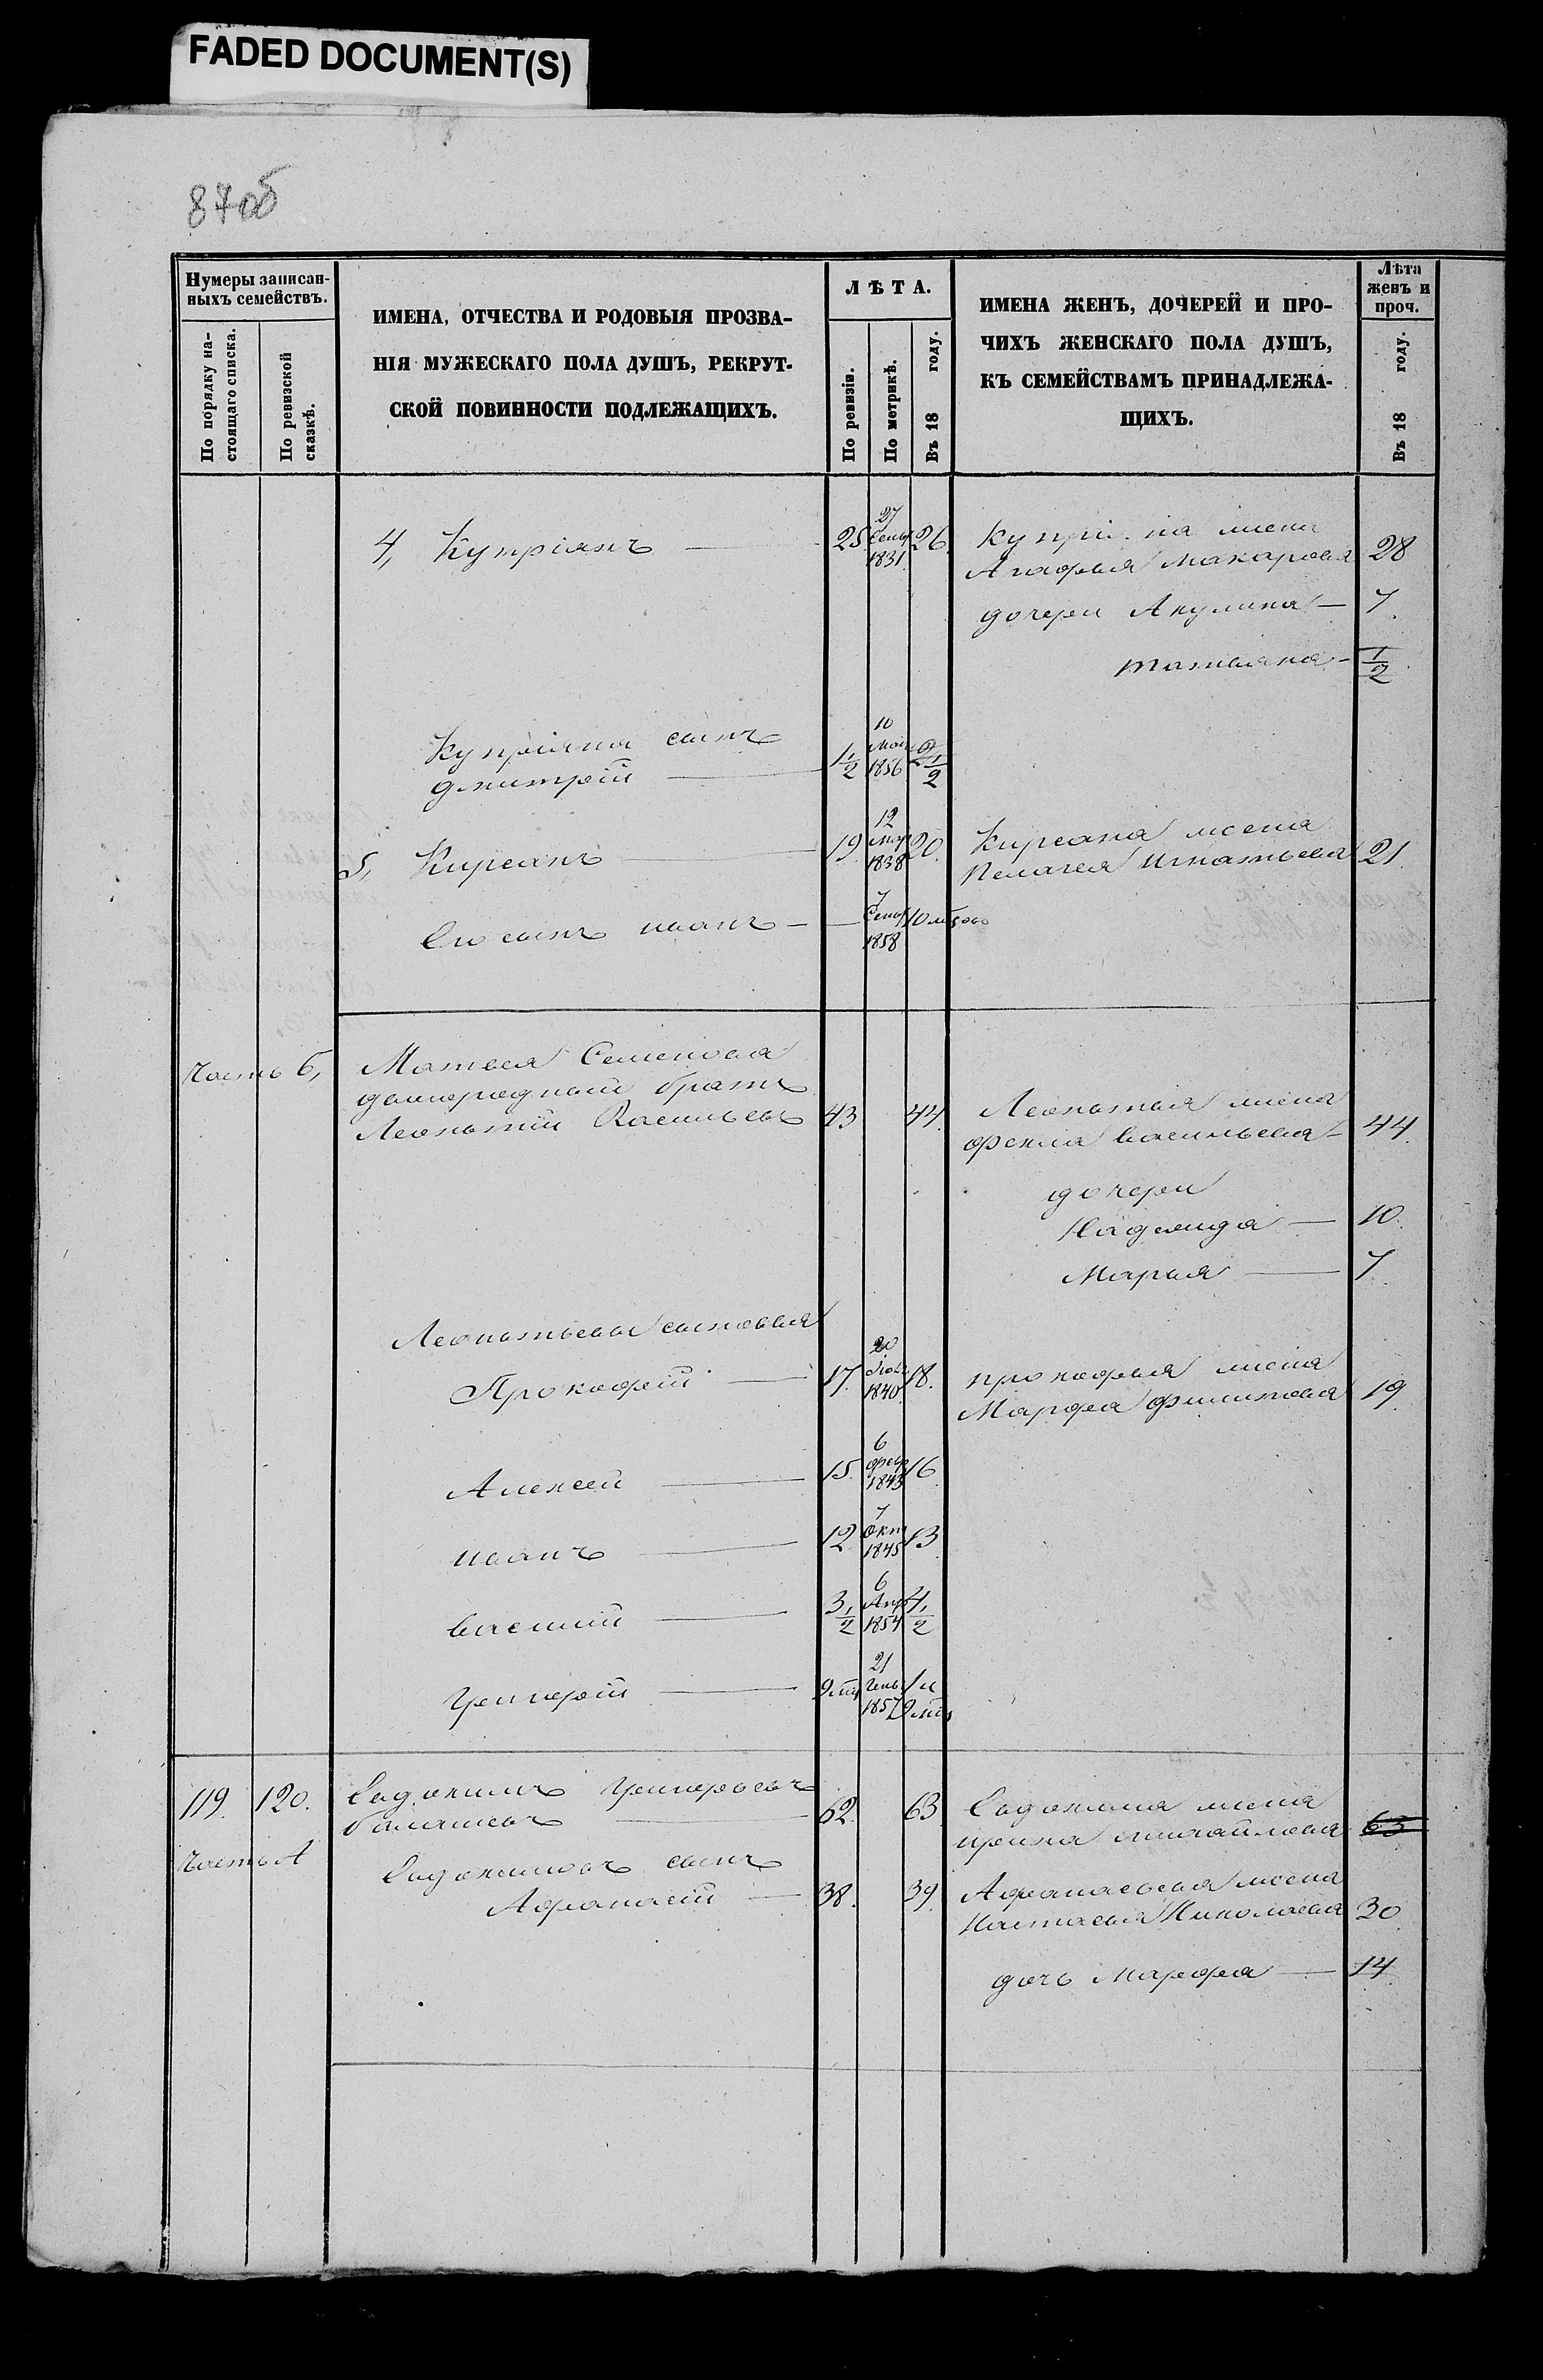 FADED DOCUMENT(S)
87об
Нумеры записан-
ныхъ семействъ.
По порядку на-
стоящаго списка.
По ревизской
сказкѣ.
ИМЕНА, ОТЧЕСТВА И РОДОВЫЯ ПРОЗВА-
НІЯ МУЖЕСКАГО ПОЛА ДУШЪ, РЕКРУТ-
СКОЙ ПОВИННОСТИ ПОДЛЕЖАЩИХЪ.
ЛѢТА.
По ревизіи.
По метрикѣ.
Въ 18 году.
ИМЕНА ЖЕНЪ, ДОЧЕРЕЙ И ПРО-
ЧИХЪ ЖЕНСКАГО ПОЛА ДУШЪ,
КЪ СЕМЕЙСТВАМЪ ПРИНАДЛЕЖА-
ЩИХЪ.
Лѣта
женъ и
проч.
Въ 18 году.
4, Купріянъ — 25. 27 Сент 1831. 26.
Купріяна жена
Агафья Макарова 28
дочери Акулина — 7.
татьяна — 1/2
Купріяна сынъ
дмитрій — 1 1/2 10 Мая 1856 2 1/2
5, Кирсанъ — 19. 12 1838 20.
Кирсана жена
Пелагея Игнатьева 21
Его сынъ иванъ — 7 Сент 1858 10 мѣсяц
Часть Б,
Матвея Семенова
двоюродный братъ
Леонтий Васильевъ 43 44.
Леонтия жена
фекла васильева — 44.
дочери
Надежда — 10.
Марья — 7
Леонтьевы сыновья
Прокофій — 17. 20 Іюл 1840. 18.
прокофья жена
Марфа филипова 19.
Алексей — 15. 6 февр 1843 16
иванъ — 12 7 окт 1845 13
василий — 3 1/2 6 Апр 1854 4 1/2
Григорій — 9 мѣс 21 Генв 1857 1 и 9 мѣс
119. 120.
Евдокимъ Григорьевъ
— 62. 63
Евдокима жена
ирина михайлова 63
Часть А
Евдокимовъ сынъ
Афанасій — 38. 39.
Афанасьева жена
Настасья Николаева 30
дочь Марфа — 14.